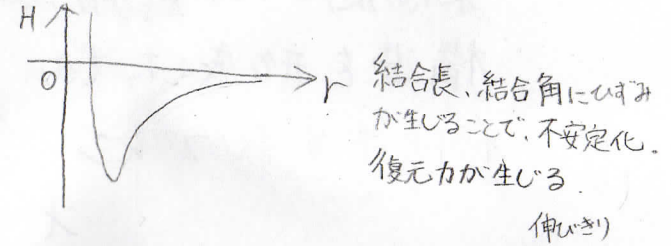 H
O
r
結合長、結合角にひずみ
が生じることで、不安定化。
復元力が生じる.
伸びきり